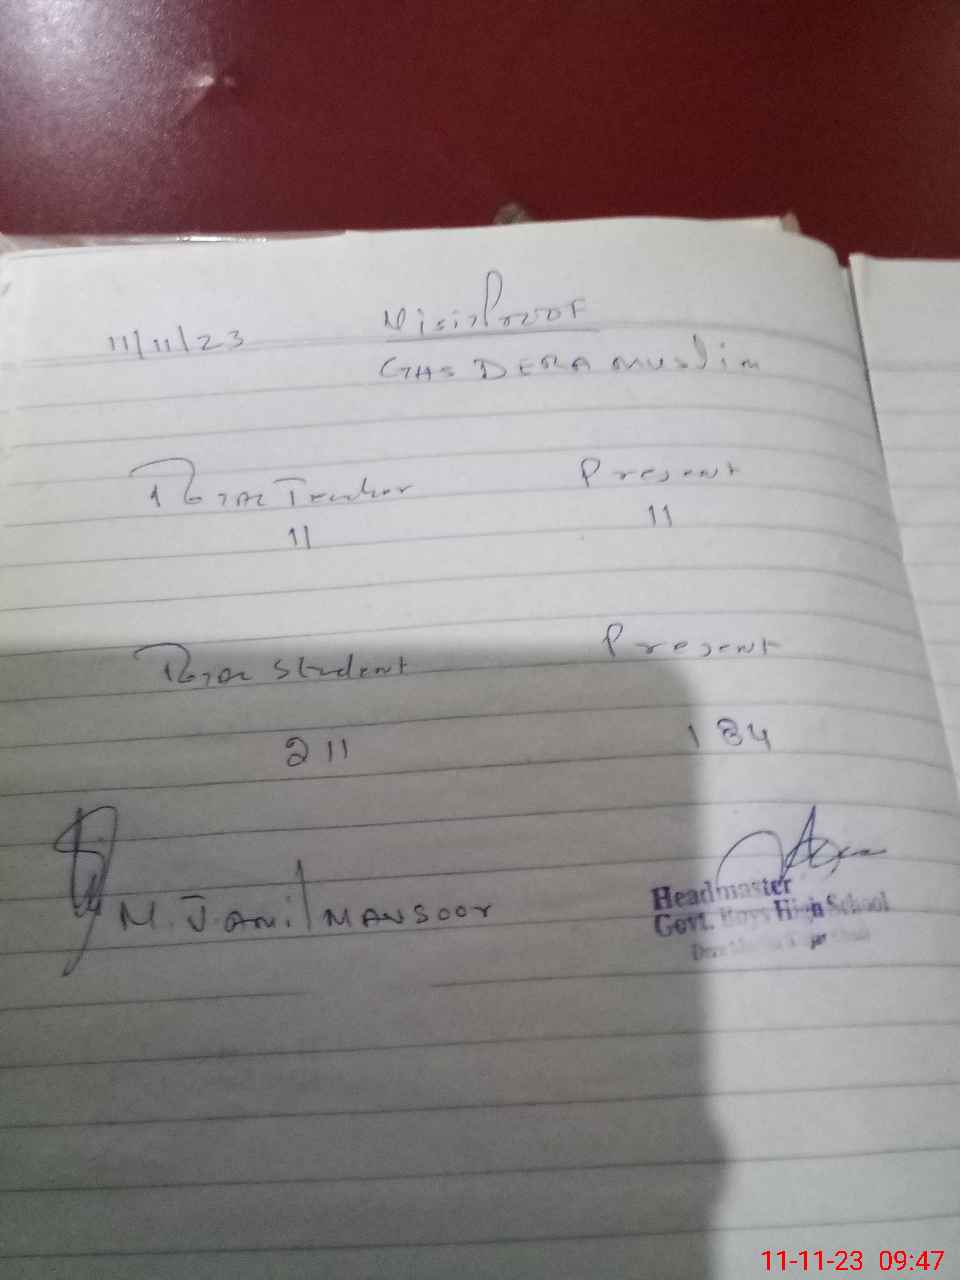 11/11/23 Visit Proof
GHS DERA Muslim
Total Teacher Present
11 11
Total Student Present
211 184
M. Jamil MANSOOR
Headmaster
Govt. Boys High School
11-11-23 09:47